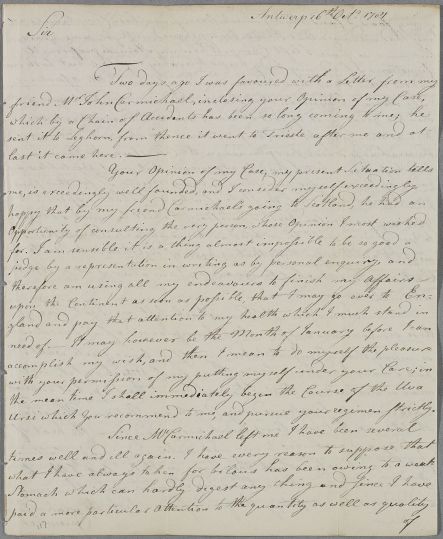 Antwerp 16th Octr. 1784
Sir,
Two days ago I was favoured with a Letter from my
friend Mr John Carmichael, inclosing your Opinion of my Case,
which by a Chain of Accidents has been so long coming to me; he
sent it to Leghorn, from thence it went to Trieste after me and at
last it came here. —
Your Opinion of my Case, my present Situation tells
me, is exceedingly well founded, and I consider myself exceedingly
happy that by my friend Carmichaels going to Scotland he had an
Opportunity of consulting the very person, whose Opinion I most wished
for. I am sensible it is a thing almost impossible to be so good a
judge by a representation in writing as by personal enquiry, and
therefore am using all my endeavours to finish my Affairs
upon the Continent as soon as possible, that I may go over to En-
gland and pay that attention to my health which I much stand in
need of. It may however be the Month of January before I can
accomplish my wish, and then I mean to do myself the pleasure
with your permission of my putting myself under your Care; in
the mean time I shall immediately begin the Course of the Uva
Ursi which you recommend to me and pursue your regimen strictly.
Since Mr Carmichael left me I have been several
times well and ill again. I have every reason to suppose, that
what I have always taken for bilious has been owing to a weak
Stomach which can hardly digest any thing and since I have
paid a more particular Attention to the quantity as well as quality
of